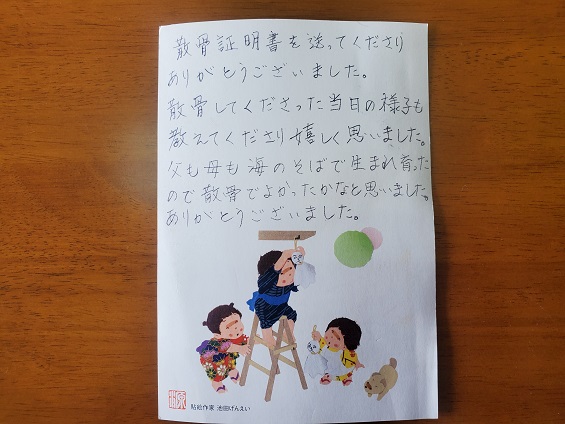 散骨証明書を送ってくださり
ありがとうございました。
散骨してくださった当日の様子も
教えてくださり嬉しく思いました。
父も母も海のそばで生まれ育った
ので散骨でよかったかなと思いました。
ありがとうございました。
貼絵作家 池田げんえい